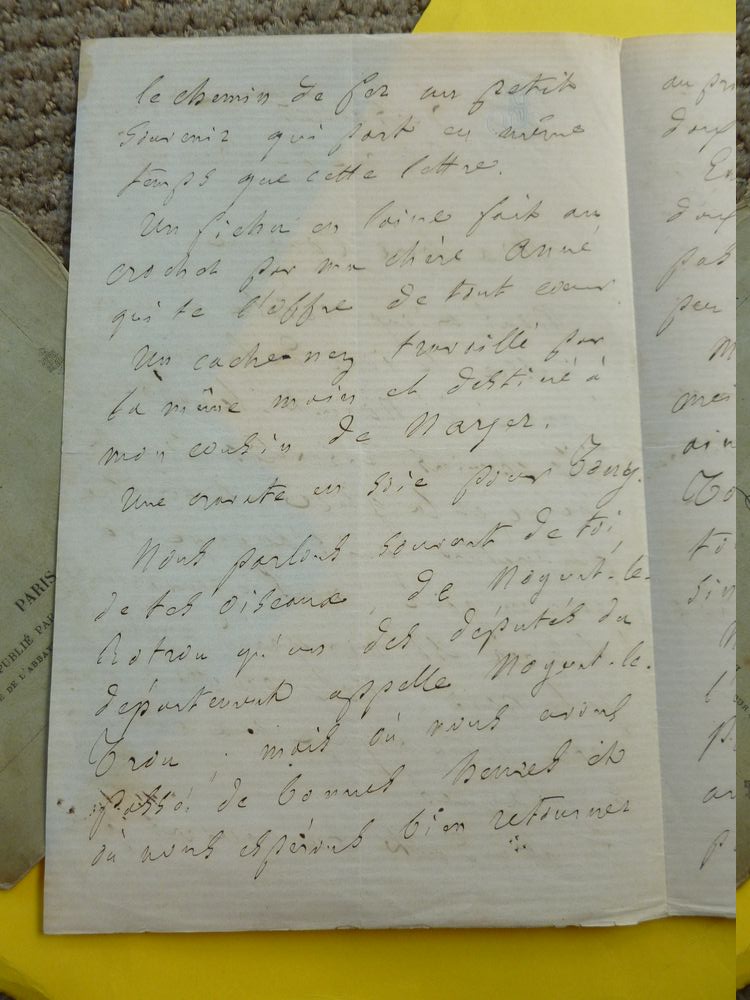 le chemin de fer un petit
souvenir qui part en même
temps que cette lettre.
Un fichu en laine fait au
crochet par ma chère Anne
qui te l'offre de tout coeur.
Un cache-nez travaillé par
la même main et destiné à
mon cousin de
Une cravate en soie pour
Nous parlons souvent de toi,
de tes oiseaux, de Nogent-le-
Rotrou qu'un des députés du
département appelle Nogent-le-
Trou, mais où nous avons
passé de bonnes heures et
où nous espérons bien retourner
au
PARIS
PUBLIÉ PAR
DE L'ABBA